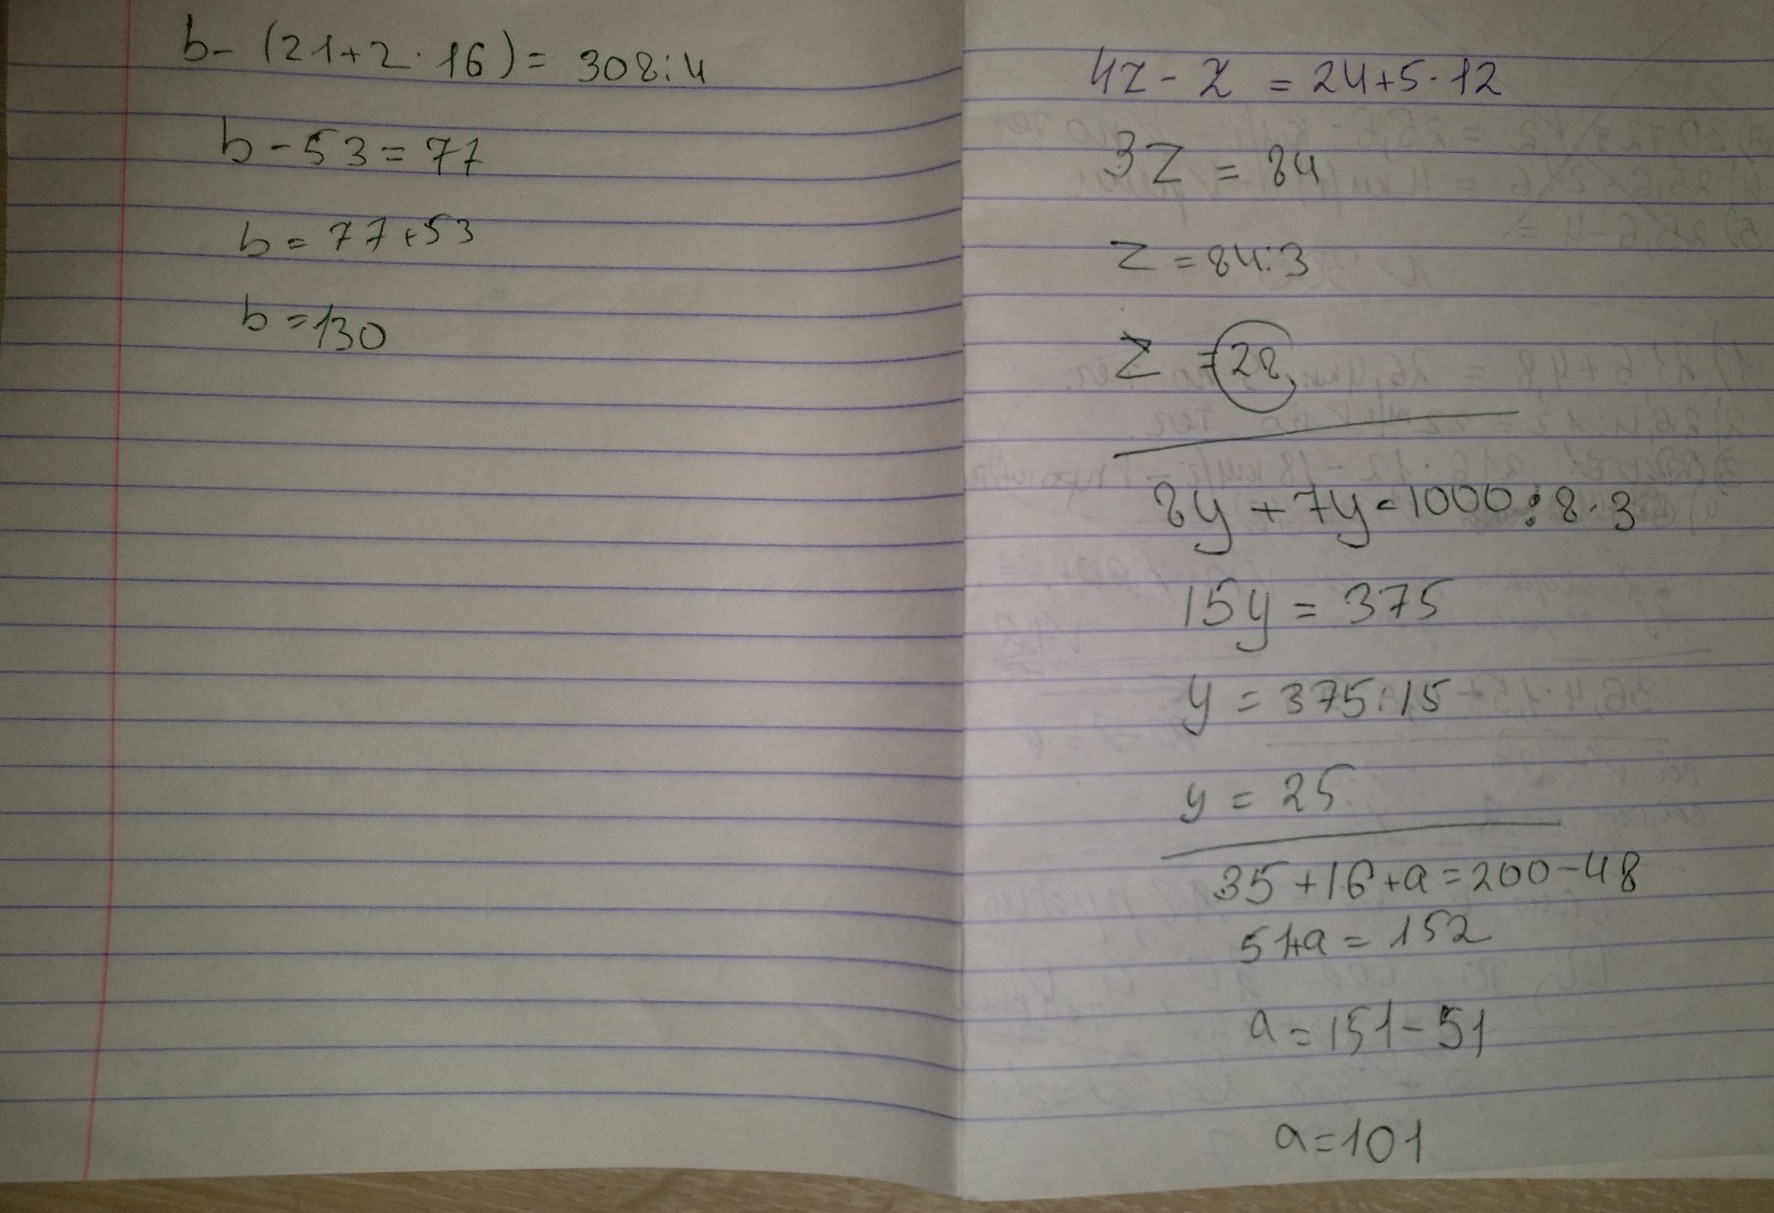 b - (21+2·16) = 308:4
b - 53 = 77
b = 77+53
b = 130
4z - z = 24+5·12
3z = 84
z = 84:3
z = 28,
8y + 7y = 1000:8·3
15y = 375
y = 375:15
y = 25
35+16+a=200-48
51+a = 152
a = 151-51
a=101